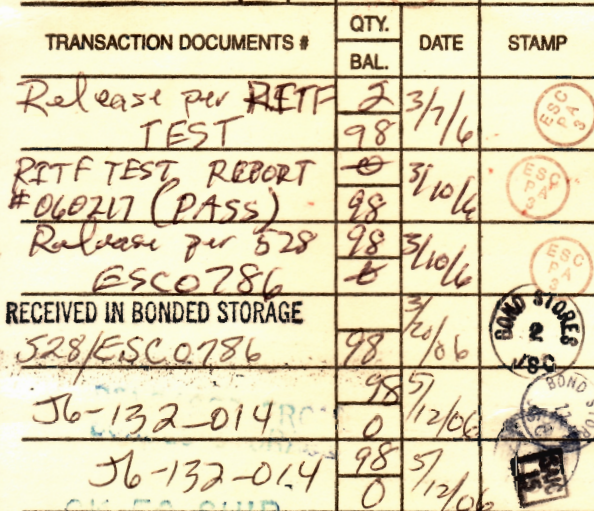 TRANSACTION DOCUMENTS #
QTY.
BAL.
DATE
STAMP
Release per RITF
TEST
2
98
3/7/6
ESC
PA
3
RITF TEST REPORT
#060217 (PASS)
0
98
3/10/6
ESC
PA
3
Release per 528
ESC0786
98
0
3/10/6
ESC
PA
3
RECEIVED IN BONDED STORAGE
528/ESC0786
98
3/20/06
BOND STORES
2
JSC
J6-132-014
98
0
5/12/06
BOND
J6-132-014
98
0
5/12/06
OK TO SHIP